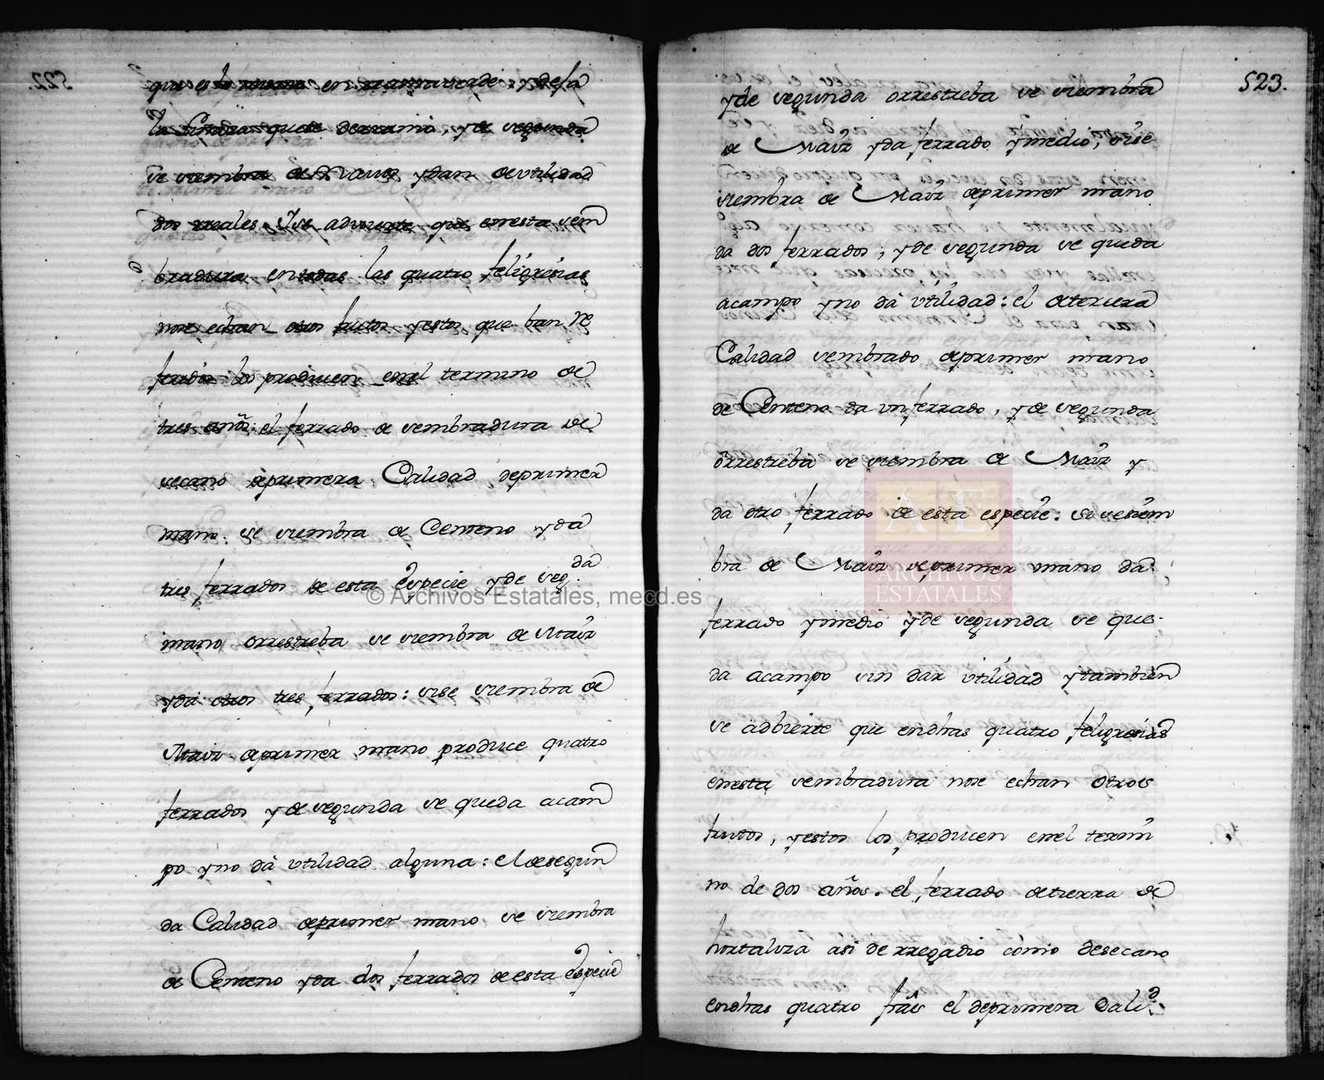 que es lo mismo en grana verde: y de la
la Lindran que se derramo, y de segunda
se siembra de Maiz y dan de utilidad
dos rreales. Y se advierte que enesta sem
bradura en todas las quatro feligresias
nose echan otros frutos y estos que ban rre
feridos los producen enel termino de
tres años. el ferrado de sembradura de
secano deprimera Calidad deprimera
mano se siembra de Centeno y dà
tres ferrados de esta Especie y de seg.da
mano orrestreba se siembra de Maiz
y dà otros tres ferrados: sise siembra de
Maiz deprimer mano produce quatro
ferrados y de segunda se queda acam
po y no dà utilidad alguna: el desegun
da Calidad deprimer mano se siembra
de Centeno y da dos ferrados de esta Especie
© Archivos Estatales, mecd.es
523.
y de segunda orrestreba se siembra
de Maiz y da ferrado y medio, sise
siembra de Maiz deprimer mano
da dos ferrados; y de segunda se queda
acampo y no dà utilidad: el detercera
Calidad sembrado deprimer mano
de Centeno da un ferrado, y de segunda
orrestreba se siembra de Maiz y
da otro ferrado de esta especie: si se siem
bra de Maiz deprimer mano da
ferrado y medio y de segunda se que
da acampo sin dar utilidad y tambien
se adbierte que endhas quatro feligresias
enesta sembradura nose echan otros
frutos, y estos los producen enel termi
no de dos años. el ferrado detierra de
hortaliza asi de rregadio como desecano
endhas quatro fras el deprimera Calid.d
AE
ARCHIVOS
ESTATALES